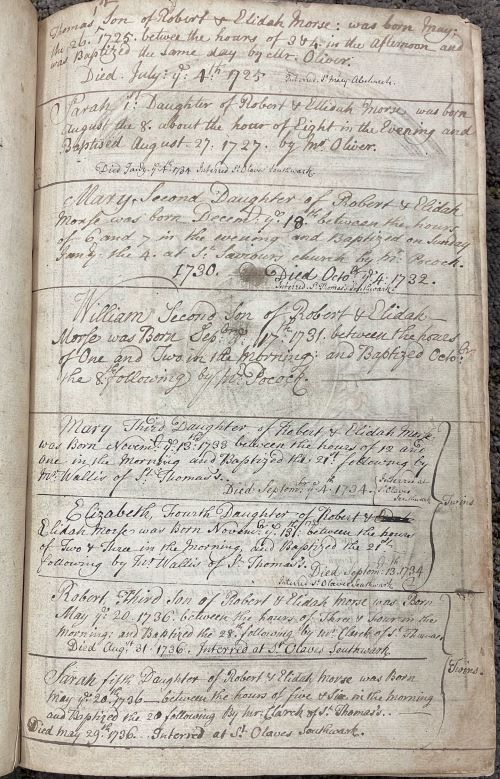 Thomas Son of Robert & Elidah Morse: was born May:
the 26. 1725. betwee the hours of 3 & 4 in the Afternoon and
was Baptized the same day by Mr. Oliver.
Died July: ye 4th 1725
Interred St Mary
Sarah 1st Daughter of Robert & Ellidah Morse was born
August the 8. about the hour of Eight in the Evening and
Baptised August 27. 1727. by Mr Oliver.
Died Janry ye 4th 1734 Interred St Olaves Southwark
Mary Second Daughter of Robert & Elidah
Morse was born Decem: ye 18th between the hours
of 6 and 7 in the evening and Baptized on Sunday
Janry: the 4. at St Saviours church by Mr. Pocock.
1730. Died Octobr ye 4. 1732.
Interred St Thomas's Southwark
William Second Son of Robert & Elidah
Morse was Born Sepbr ye 17th 1731. between the hours
of One and Two in the Morning: and Baptized Octobr
the 8th following by Mr Pocock.
Mary Third Daughter of Robert & Elidah Morse
was Born Novembr ye 13th 1733 between the hours of 12 and
One in the Morning and Baptized the 21st following by
Mr Wallis of St Thomas's.
Died Septembr ye 4th 1734.
Interred at
St Olaves
Southwark
Twins
Elizabeth, Fourth Daughter of Robert &
Elidah Morse was Born Novembr ye 13th: between the hours
of Two & Three in the Morning, and Baptized the 21st
following by Mr Wallis of St Thomas's.
Died Septem: 13. 1734
Interred St Olaves Southwark
Robert Third Son of Robert & Elidah Morse was Born
May ye 20. 1736. between the hours of Three & Four in the
Morning: and Baptized the 28. following by Mr. Clarck of St Thomas
Died Augst 31. 1736. Interred at St Olaves Southwark
Twins.
Sarah fifth Daughter of Robert & Elidah Morse was Born
May ye 20th 1736 between the hours of five & Six in the morning
and Baptized the 20 following By Mr: Clarck of St Thomas's.
Died May 29th 1736. Interred at St Olaves Southwark.